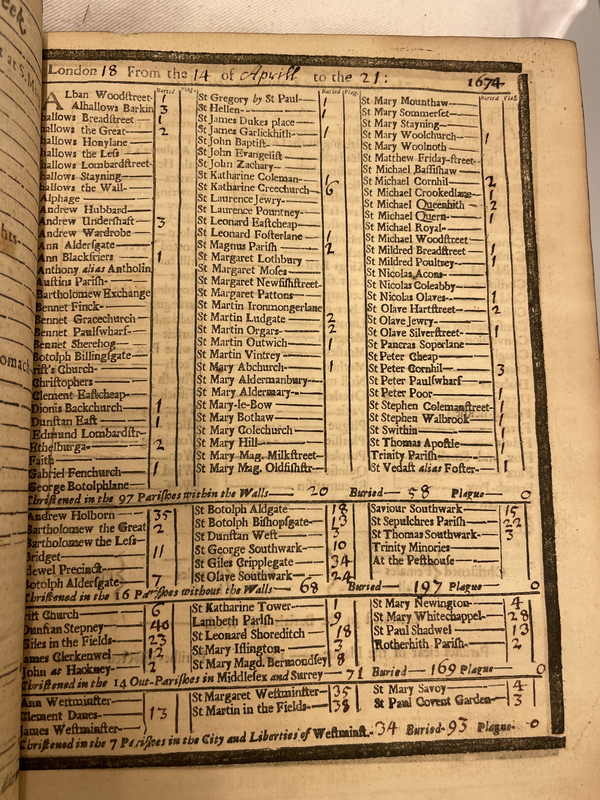 London 18 From the 14 of Aprill to the 21: 1674
Buried Plag.
Alban Woodstreet 1
Alhallows Barkin 3
hallows Breadstreet 1
hallows the Great 2
hallows Honylane
hallows the Less
hallows Lombardstreet
hallows Stayning
hallows the Wall
Alphage
Andrew Hubbard
Andrew Undershaft 3
Andrew Wardrobe
Ann Aldersgate
Ann Blackfriers 1
Anthony alias Antholin
Austins Parish
Bartholomew Exchange
Bennet Finck
Bennet Gracechurch
Bennet Paulswharf
Bennet Sherehog
Botolph Billingsgate
rist's Church
Christophers
Clement Eastcheap
Dionis Backchurch 1
Dunstan East 1
Edmund Lombardstr.
Ethelburga 2
Faith
Gabriel Fenchurch 1
George Botolphlane
Buried Plag.
St Gregory by St Paul 1
St Hellen
St James Dukes place
St James Garlickhith 1
St John Baptist
St John Evangelist
St John Zachary
St Katharine Coleman 1
St Katharine Creechurch 6
St Laurence Jewry
St Laurence Pountney
St Leonard Eastcheap
St Leonard Fosterlane 1
St Magnus Parish 2
St Margaret Lothbury
St Margaret Moses
St Margaret Newfishstreet
St Margaret Pattons
St Martin Ironmongerlane
St Martin Ludgate 2
St Martin Orgars 2
St Martin Outwich 1
St Martin Vintrey
St Mary Abchurch 1
St Mary Aldermanbury
St Mary Aldermary
St Mary-le-Bow
St Mary Bothaw
St Mary Colechurch
St Mary Hill
St Mary Mag. Milkstreet
St Mary Mag. Oldfishstr
Buried Plag
St Mary Mounthaw
St Mary Sommerset
St Mary Stayning
St Mary Woolchurch 1
St Mary Woolnoth
St Matthew Friday-street
St Michael Bassishaw
St Michael Cornhil 2
St Michael Crookedlane 1
St Michael Queenhith 2
St Michael Quern 1
St Michael Royal
St Michael Woodstreet
St Mildred Breadstreet 1
St Mildred Poultney 1
St Nicolas Acons
St Nicolas Coleabby
St Nicolas Olaves 1
St Olave Hartstreet 2
St Olave Jewry
St Olave Silverstreet 1
St Pancras Soperlane
St Peter Cheap
St Peter Cornhil 3
St Peter Paulswharf
St Peter Poor 1
St Stephen Colemanstreet 1
St Stephen Walbrook 1
St Swithin
St Thomas Apostle 1
Trinity Parish
St Vedast alias Foster 1
Christened in the 97 Parishes within the Walls 20 Buried 58 Plague 0
Andrew Holborn 35
Bartholomew the Great 2
Bartholomew the Less
Bridget 11
dewel Precinct
Botolph Aldersgate 7
St Botolph Aldgate 18
St Botolph Bishopsgate 13
St Dunstan West 3
St George Southwark 10
St Giles Cripplegate 34
St Olave Southwark 24
Saviour Southwark 15
St Sepulchres Parish 22
St Thomas Southwark 3
Trinity Minories
At the Pesthouse
Christened in the 16 Parishes without the Walls 68 Buried 197 Plague 0
rist Church 6
Dunstan Stepney 40
Giles in the Fields 23
James Clerkenwel 12
John at Hackney 2
St Katharine Tower 1
Lambeth Parish 9
St Leonard Shoreditch 18
St Mary Islington 3
St Mary Magd. Bermondsey 8
St Mary Newington 4
St Mary Whitechappel 28
St Paul Shadwel 13
Rotherhith Parish 2
Christened in the 14 Out-Parishes in Middlesex and Surrey 71 Buried 169 Plague 0
Ann Westminster
Clement Danes 13
James Westminster
St Margaret Westminster 35
St Martin in the Fields 38
St Mary Savoy 4
St Paul Covent Garden 3
Christened in the 7 Parishes in the City and Liberties of Westminst. 34 Buried 93 Plague 0